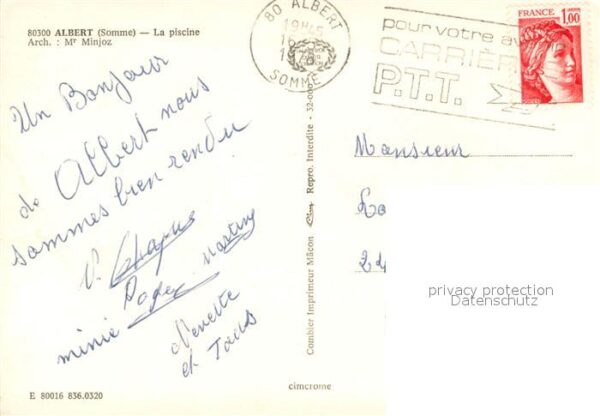 80300 ALBERT (Somme) — La piscine
Arch. : Mr Minjoz
80 ALBERT
19H45
SOMME
pour votre av
CARRIÈR
P.T.T.
FRANCE 1,00
Un Bonjour
de Albert nous
sommes bien rendu
V.
Roger
minie
et Tous
Monsieur
24
Combier Imprimeur Mâcon Repro. Interdite - 32-000
privacy protection
Datenschutz
E 80016 836.0320
cimcrome